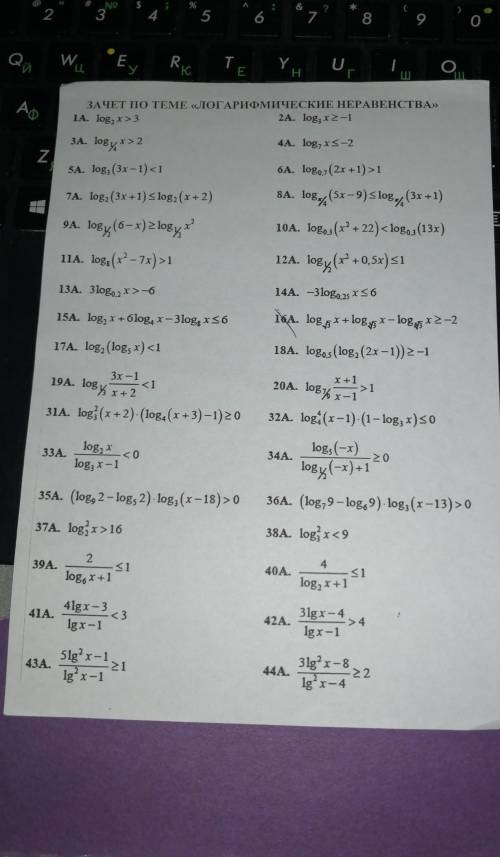 @ 2 " # 3 № $ 4 ; % 5 ^ 6 : & 7 ? * 8 ( 9 ) 0
Q Й W Ц E У R К T Е Y Н U Г I Ш O Щ
A Ф
Z
ЗАЧЕТ ПО ТЕМЕ «ЛОГАРИФМИЧЕСКИЕ НЕРАВЕНСТВА»
1А. log₂ x > 3 2А. log₃ x ≥ −1
3А. log_{1/4} x > 2 4А. log₇ x ≤ −2
5А. log₃(3x−1) < 1 6А. log₀,₇(2x+1) > 1
7А. log₂(3x+1) ≤ log₂(x+2) 8А. log_{π/4}(5x−9) ≤ log_{π/4}(3x+1)
9А. log_{1/3}(6−x) ≥ log_{1/3} x² 10А. log₀,₃(x²+22) < log₀,₃(13x)
11А. log₈(x²−7x) > 1 12А. log_{1/2}(x²+0,5x) ≤ 1
13А. 3log₀.₂ x > −6 14А. −3log₀,₂₅ x ≤ 6
15А. log₂ x + 6log₄ x − 3log₈ x ≤ 6 16А. x + x − x ≥ −2
17А. log₂(log₅ x) < 1 18А. log₀.₅(log₃(2x−1)) ≥ −1
19А. log_{1/3} (3x−1)/(x+2) < 1 20А. (x+1)/(x−1) > 1
31А. log₃²(x+2)·(log₄(x+3)−1) ≥ 0 32А. log₄⁴(x−1)·(1−log₃ x) ≤ 0
33А. (log₂ x)/(log₃ x−1) < 0 34А. (log₅(−x))/(log_{1/2}(−x)+1) ≥ 0
35А. (log₉ 2−log₅ 2)·log₃(x−18) > 0 36А. (log₇ 9−log₆ 9)·log₃(x−13) > 0
37А. log₂² x > 16 38А. log₃² x < 9
39А. 2/(log₆ x+1) ≤ 1 40А. 4/(log₂ x+1) ≤ 1
41А. (4lg x−3)/(lg x−1) < 3 42А. (3lg x−4)/(lg x−1) > 4
43А. (5lg² x−1)/(lg² x−1) ≥ 1 44А. (3lg² x−8)/(lg² x−4) ≥ 2